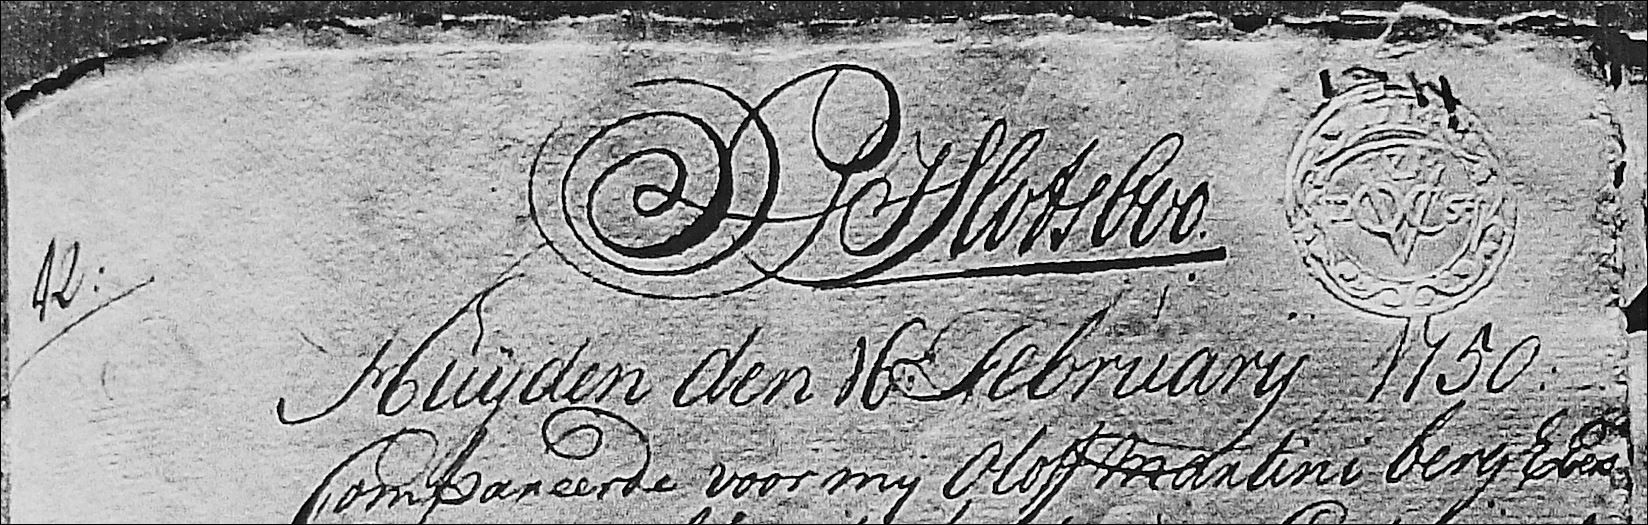 12:
Slotsboo.
Huÿden den 16. February 1750.
Compareerde voor mij Oloff Martini berg